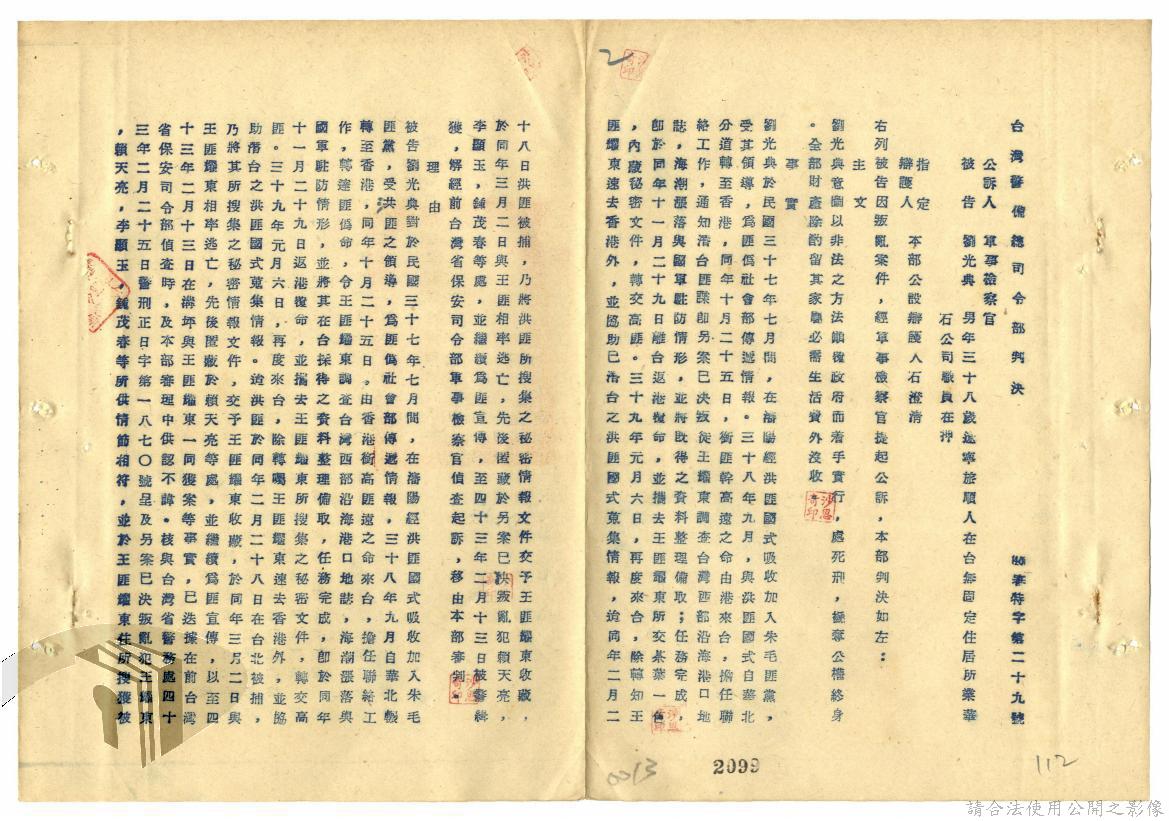 台灣警備總司令部判決
特字第二十九號
公訴人　軍事檢察官
被告　劉光典　男年三十八歲遼寧旅順人在台無固定住居所業華
石公司職員在押
指定
辯護人　本部公設辯護人石澄清
右列被告因叛亂案件，經軍事檢察官提起公訴，本部判決如左：
主文
劉光典意圖以非法之方法顛覆政府而着手實行，處死刑，褫奪公權終身
。全部財產除酌留其家屬必需生活費外沒收。
事實
劉光典於民國三十七年七月間，在瀋陽經洪匪國式吸收加入朱毛匪黨，
受其領導，爲匪僞社會部傳遞情報。三十八年九月，與洪匪國式自華北
分道轉至香港，同年十月二十五日，銜匪幹高遠之命由港來台，擔任聯
絡工作，通知潛台匪諜即另案已決叛徒王耀東調查台灣西部沿海港口地
誌，海潮漲落與國軍駐防情形，並將旣得之資料整理備取；任務完成，
即於同年十一月二十九日離台返港復命，並攜去王匪耀東所交茶葉一傭
，內藏秘密文件，轉交高匪。三十九年元月六日，再度來台，除轉知王
匪耀東速去香港外，並協助已潛台之洪匪國式蒐集情報，迨同年二月二
十八日洪匪被捕，乃將洪匪所搜集之秘密情報文件交予王匪耀東收藏，
於同年三月二日與王匪相率逃亡，先後匿藏於另案已決叛亂犯賴天亮，
李顯玉，鍾茂春等處，並繼續爲匪宣傳，至四十三年二月十三日被警緝
獲，解經前台灣省保安司令部軍事檢察官偵查起訴，移由本部審判。
理由
被告劉光典對於民國三十七年七月間，在瀋陽經洪匪國式吸收加入朱毛
匪黨，受洪匪之領導，爲匪僞社會部傳遞情報，三十八年九月自華北輾
轉至香港，同年十月二十五日。由香港銜高匪遠之命來台，擔任聯絡工
作，轉達匪僞命，令王匪耀東調查台灣西部沿海港口地誌，海潮漲落與
國軍駐防情形，並將其在台採得之資料整理備取，任務完成，即於同年
十一月二十九日返港復命，並攜去王匪耀東所搜集之秘密文件，轉交高
匪。三十九年元月六日，再度來台，除轉囑王匪耀東速去香港外，並協
助潛台之洪匪國式蒐集情報。迨洪匪於同年二月二十八日在台北被捕，
乃將其所搜集之秘密情報文件，交予王匪耀東收藏，於同年三月二日與
王匪耀東相率逃亡，先後匿藏於賴天亮等處，並繼續爲匪宣傳，以至四
十三年二月十三日在潭坪與王匪耀東一同獲案等事實，已迭據在前台灣
省保安司令部偵查時，及本部審理中供認不諱。核與台灣省警務處四十
三年二月二十五日警刑正日字第一八七〇號呈及另案已決叛亂犯王耀東
，賴天亮，李顯玉，鍾茂春等所供情節相符，並於王匪耀東住所搜獲被
2
2099
0013
112
請合法使用公開之影像